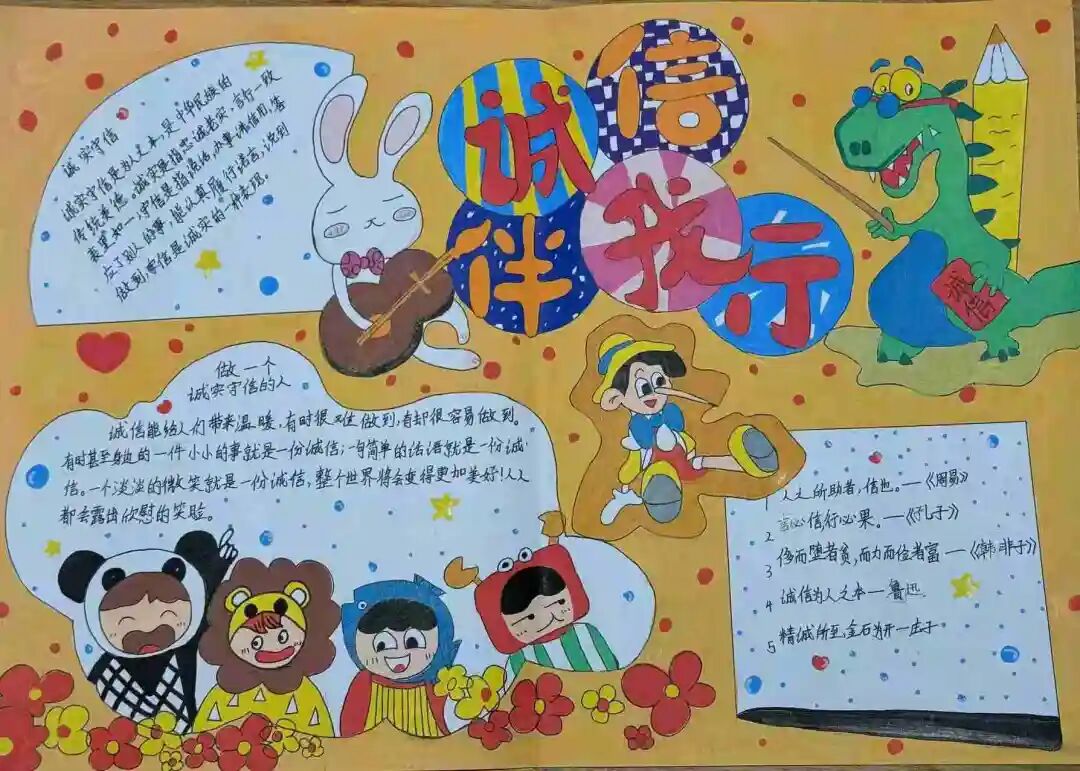 诚信
伴我行
诚信
诚实守信
诚实守信是为人之本,是中华民族的
传统美德。诚实是指忠诚老实,言行一致
表里如一,守信是指说话,办事讲信用,答
应了别人的事,能认真履行诺言,说到
做到,守信是诚实的一种表现。
做一个
诚实守信的人
诚信能给人们带来温暖,有时很难做到,有却很容易做到。
有时甚至身边的一件小小的事就是一份诚信;一句简单的话语就是一份诚
信。一个淡淡的微笑就是一份诚信,整个世界将会变得更加美好!人人
都会露出欣慰的笑脸。
1 人之所助者,信也。—《周易》
2 言必信行必果。—《孔子》
3 侈而堕者贫,而力而俭者富—《韩非子》
4 诚信为人之本—鲁迅
5 精诚所至金石为开—庄子